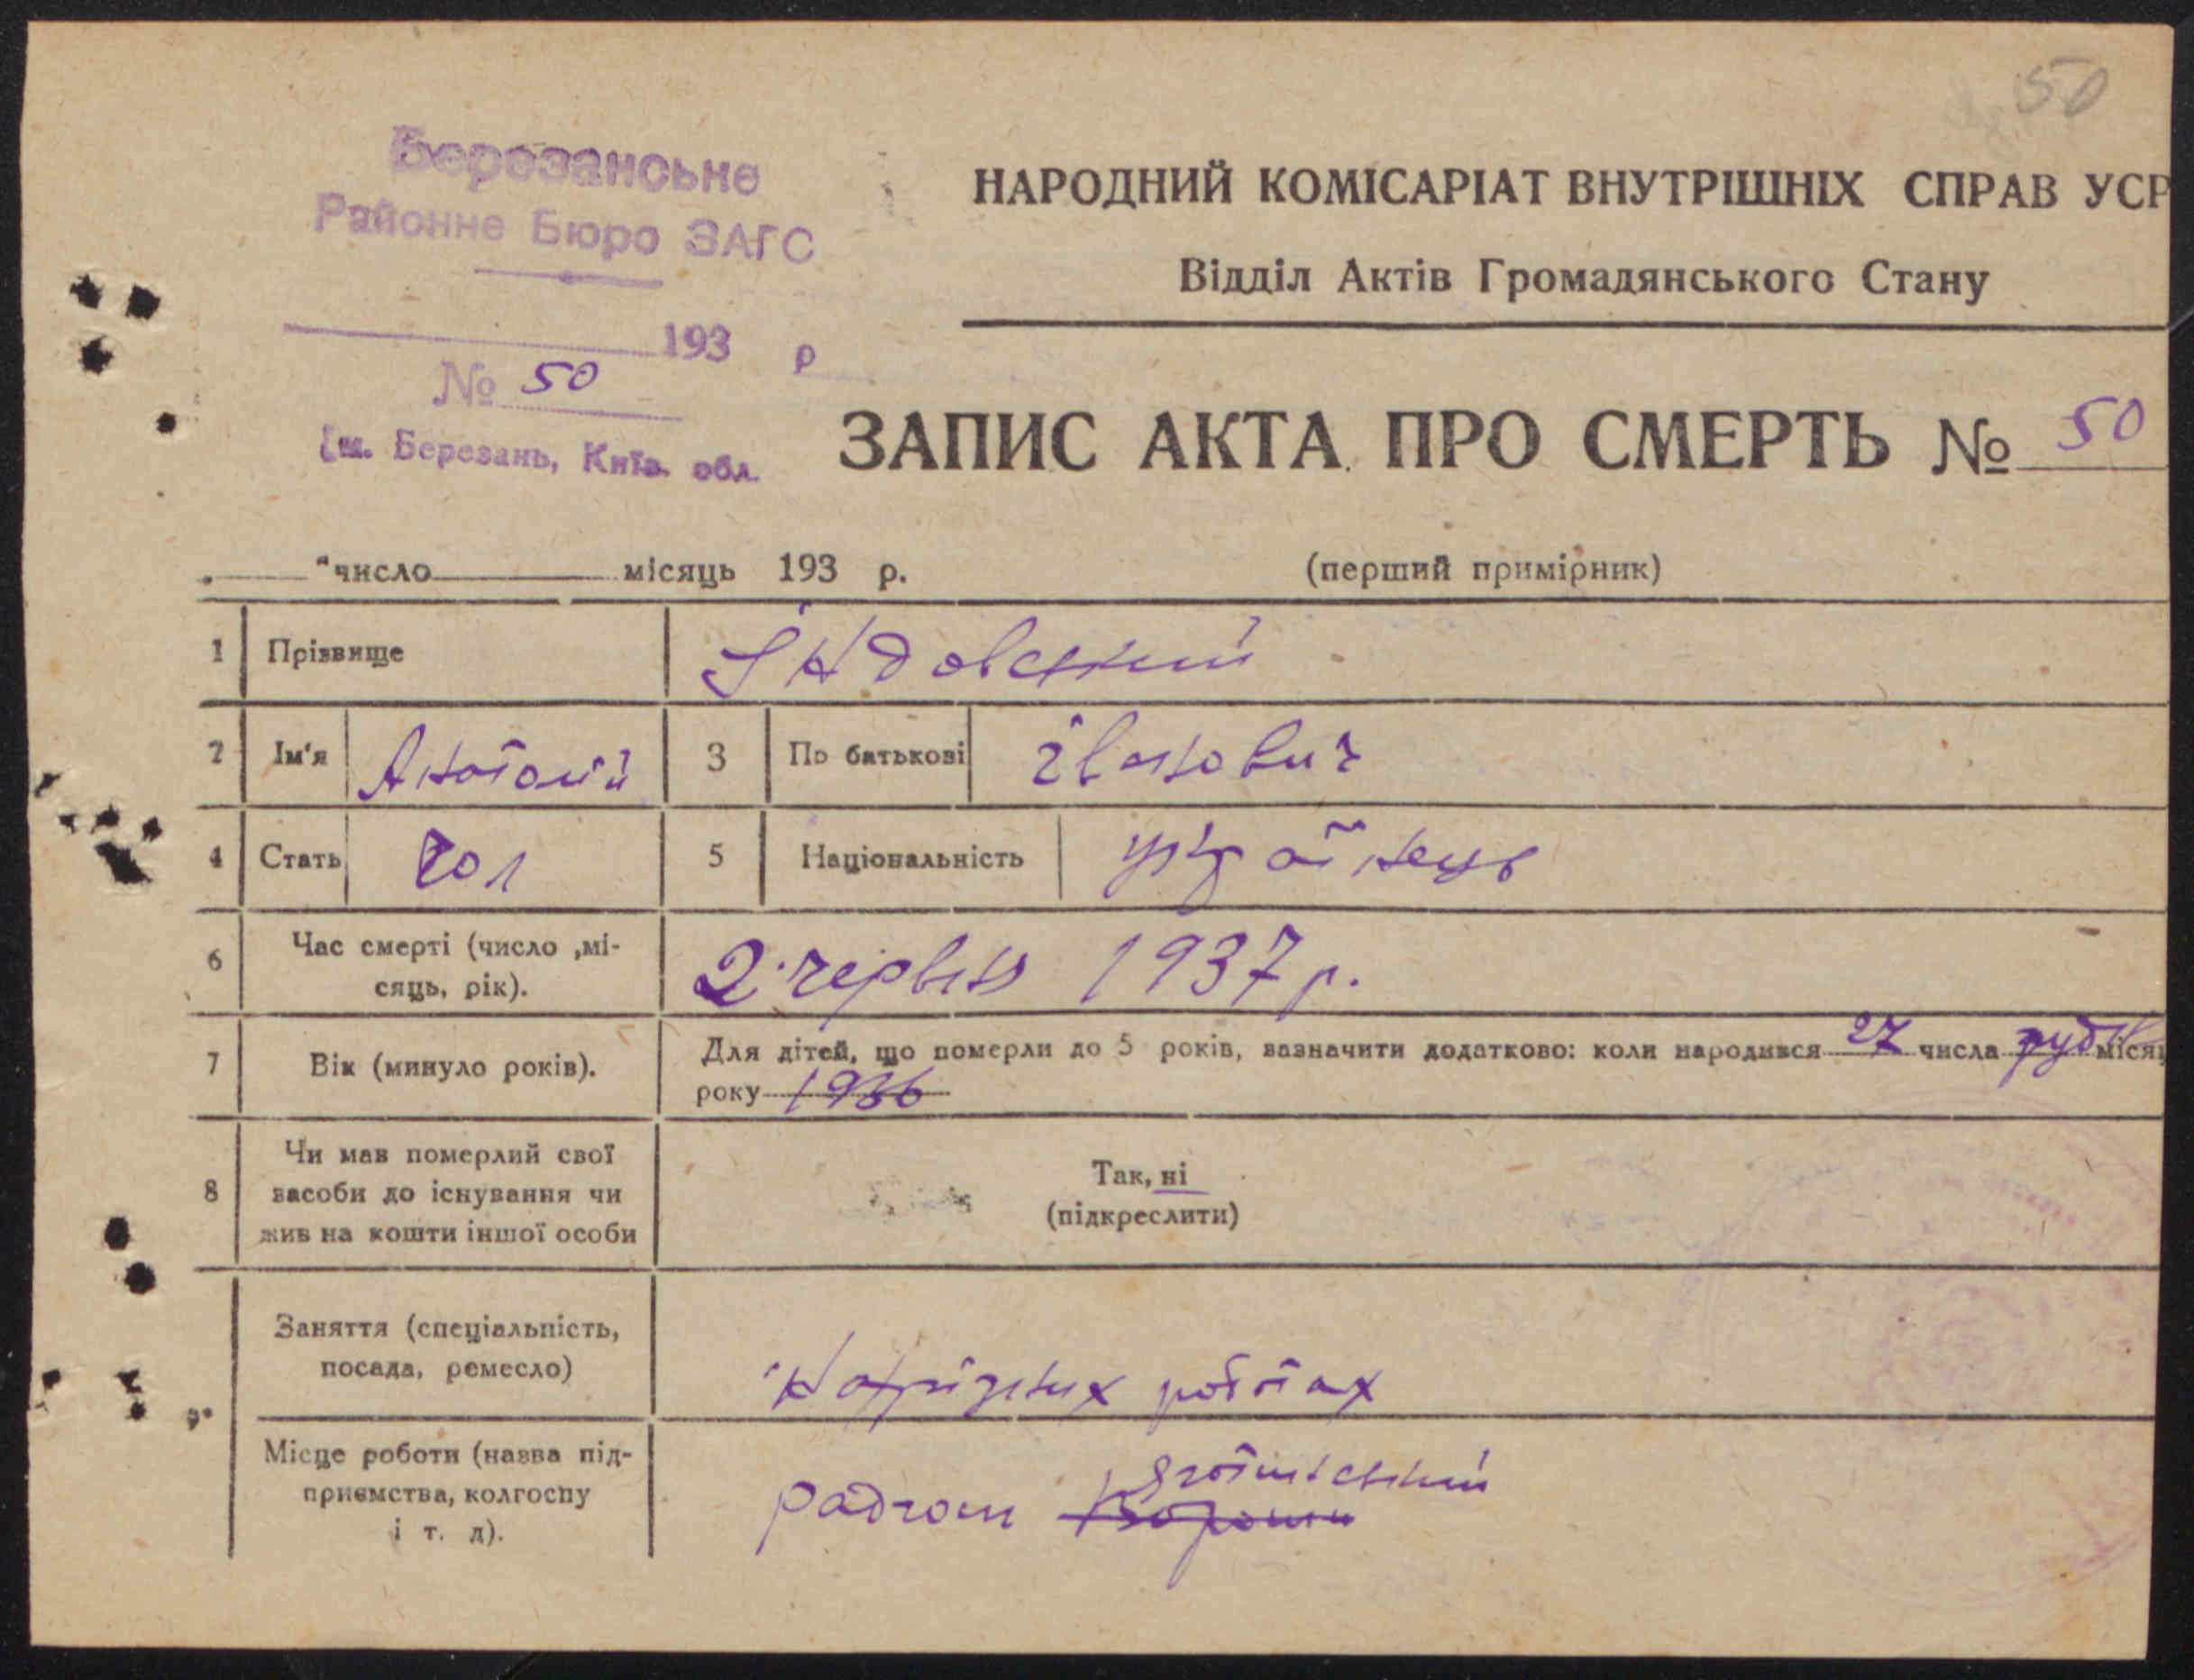 50
Березанське
Районне Бюро ЗАГС
193 р
№ 50
(м. Березань, Київ. обл.
НАРОДНИЙ КОМІСАРІАТ ВНУТРІШНІХ СПРАВ УСР
Відділ Актів Громадянського Стану
ЗАПИС АКТА ПРО СМЕРТЬ № 50
„ “ число місяць 193 р. (перший примірник)
1 Прізвище Індовський
2 Ім'я Анатолій 3 По батькові іванович
4 Стать чол 5 Національність українець
6 Час смерті (число ,мі-
сяць, рік). 2 червня 1937 р.
7 Вік (минуло років). Для дітей, що померли до 5 років, зазначити додатково: коли народився 27 числа груд місяц
року 1936
8 Чи мав померлий свої
засоби до існування чи
жив на кошти іншої особи
Так, ні
(підкреслити)
9. Заняття (спеціальність,
посада, ремесло) На різних роботах
Місце роботи (назва під-
приємства, колгоспу
і т. д).
Яготинський
радгосп